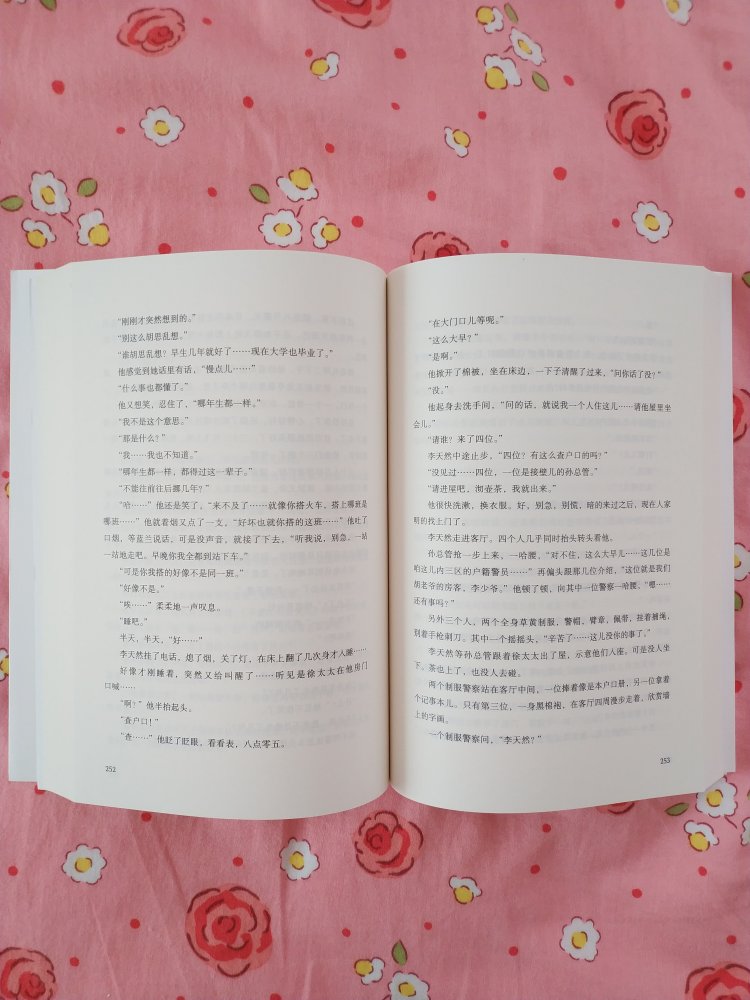 “刚刚才突然想到的。”
“别这么胡思乱想。”
“谁胡思乱想？早生几年就好了……现在大学也毕业了。”
他感觉到她话里有话，“慢点儿……”
“什么事也都懂了。”
他又想笑，忍住了，“哪年生都一样。”
“我不是这个意思。”
“那是什么？”
“我……我也不知道。”
“哪年生都一样，都得过这一辈子。”
“不能往前往后挪几年？”
“哈……”他还是笑了，“来不及了……就像你搭火车，搭上哪班是
哪班……”他就着烟又点了一支，“好坏也就你搭的这班……”他吐了
口烟，等蓝兰说话，可是没声音，就接了下去，“听我说，别急。一站
一站地走吧。早晚你我全都到站下车。”
“可是你我搭的好像不是同一班。”
“好像不是。”
“唉……”柔柔地一声叹息。
“睡吧。”
半天，半天，“好……”
李天然挂了电话，熄了烟，关了灯，在床上翻了几次身才入睡……
好像才刚睡着，突然又给叫醒了……听见是徐太太在他房门
口喊……
“啊？”他半抬起头。
“查户口！”
“查……”他眨了眨眼，看看表，八点零五。
252
“在大门口儿等呢。”
“这么大早？”
“是啊。”
他掀开了棉被，坐在床边，一下子清醒了过来，“问你话了没？”
“没。”
他起身去洗手间，“问的话，就说我一个人住这儿……请他屋里坐
会儿。”
“请谁？来了四位。”
李天然中途止步，“四位？有这么查户口的吗？”
“没见过……四位，一位是接壁儿的孙总管。”
“请进屋吧，沏壶茶，我就出来。”
他很快洗漱，换衣服。好，别急，别慌，暗的来过之后，现在人家
明的找上门了。
李天然走进客厅。四个人几乎同时抬头转头看他。
孙总管抢一步上来，一哈腰，“对不住，这么大早儿……这几位是
咱这儿内三区的户籍警员……”再偏头跟那几位介绍，“这位就是我们
胡老爷的房客，李少爷。”他顿了顿，向其中一位警察一哈腰，“嗯……
还有事吗？”
另外三个人，两个全身草黄制服，警帽，臂章，佩带，挂着捕绳，
别着手枪刺刀。其中一个摇摇头，“辛苦了……这儿没你的事了。”
李天然等孙总管跟着徐太太出了屋，示意他们入座。可是没人坐
下。茶也上了，也没人去碰。
两个制服警察站在客厅中间，一位捧着像是本户口册，另一位拿着
个记事本儿。只有第三位，一身黑棉袍，在客厅四周漫步走着，欣赏墙
上的字画。
一个制服警察问，“李天然？”
253